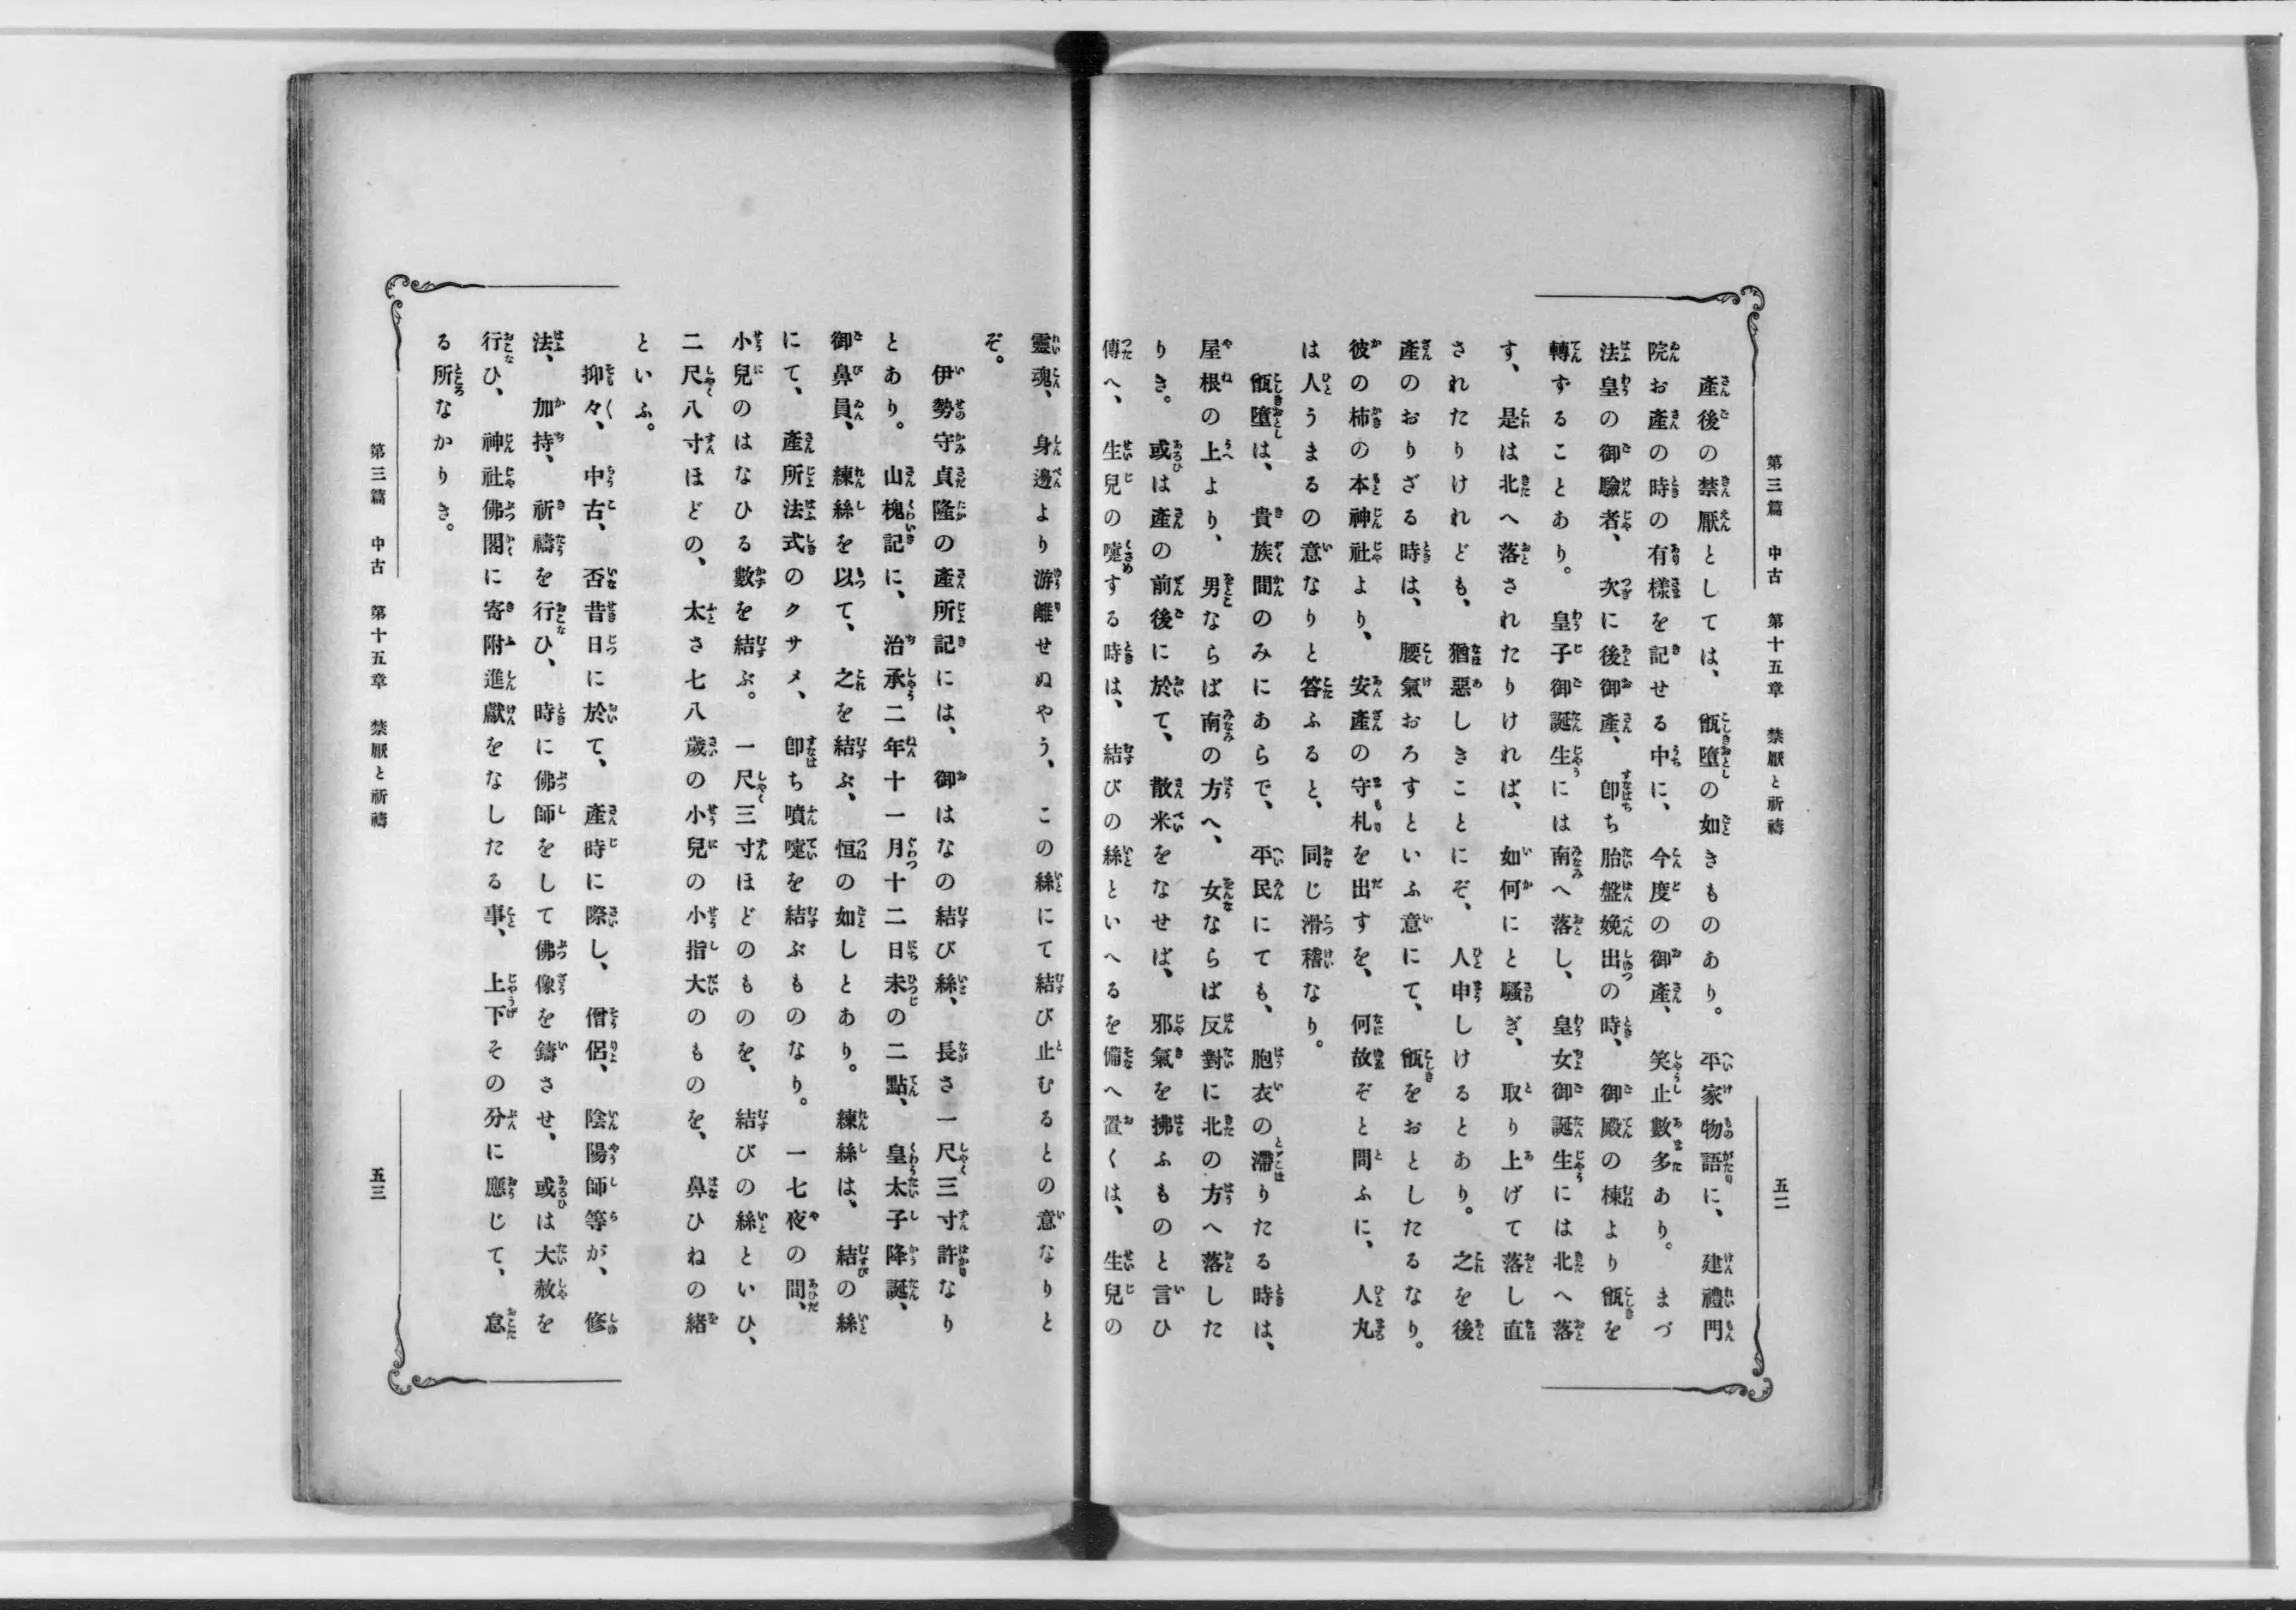 第三篇　中古　第十五章　禁厭と祈禱
五二
產後の禁厭としては、甑墮の如きものあり。平家物語に、建禮門
院お產の時の有樣を記せる中に、今度の御產、笑止數多あり。まづ
法皇の御驗者、次に後御產、卽ち胎盤娩出の時、御殿の棟より甑を
轉ずることあり。皇子御誕生には南へ落し、皇女御誕生には北へ落
す、是は北へ落されたりければ、如何にと騷ぎ、取り上げて落し直
されたりけれども、猶惡しきことにぞ、人申しけるとあり。之を後
產のおりざる時は、腰氣おろすといふ意にて、甑をおとしたるなり。
彼の柿の本神社より、安產の守札を出すを、何故ぞと問ふに、人丸
は人うまるの意なりと答ふると、同じ滑稽なり。
甑墮は、貴族間のみにあらで、平民にても、胞衣の滯りたる時は、
屋根の上より、男ならば南の方へ、女ならば反對に北の方へ落した
りき。或は產の前後に於て、散米をなせば、邪氣を拂ふものと言ひ
傳へ、生兒の嚔する時は、結びの絲といへるを備へ置くは、生兒の
靈魂、身邊より游離せぬやう、この絲にて結び止むるとの意なりと
ぞ。
伊勢守貞隆の產所記には、御はなの結び絲、長さ一尺三寸許なり
とあり。山槐記に、治承二年十一月十二日未の二點、皇太子降誕、
御鼻員、練絲を以て、之を結ぶ、恒の如しとあり。練絲は、結の絲
にて、產所法式のクサメ、卽ち噴嚔を結ぶものなり。一七夜の間、
小兒のはなひる數を結ぶ。一尺三寸ほどのものを、結びの絲といひ、
二尺八寸ほどの、太さ七八歲の小兒の小指大のものを、鼻ひねの緖
といふ。
抑々、中古、否昔日に於て、產時に際し、僧侶、陰陽師等が、修
法、加持、祈禱を行ひ、時に佛師をして佛像を鑄させ、或は大赦を
行ひ、神社佛閣に寄附進獻をなしたる事、上下その分に應じて、怠
る所なかりき。
第三篇　中古　第十五章　禁厭と祈禱
五三